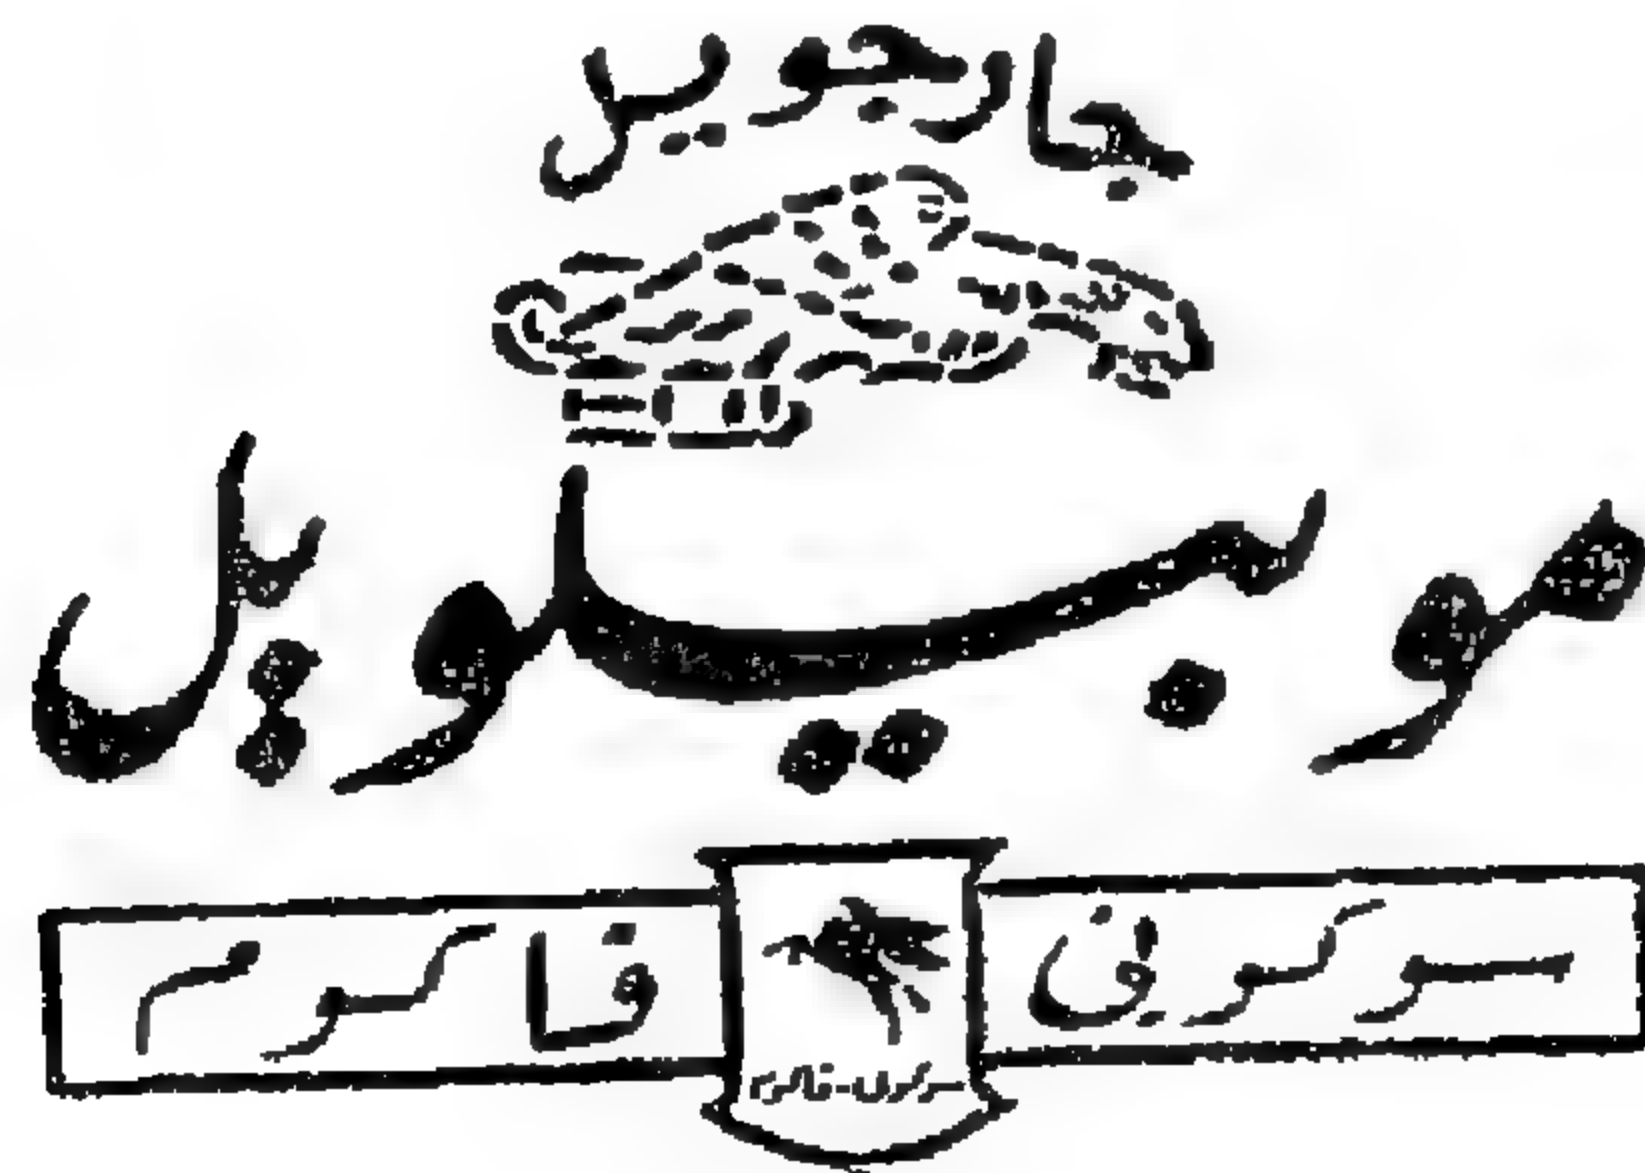 جارجويل
موبيلويل
سوكوني ڤاكوم
سوكوني-ڤاكوم